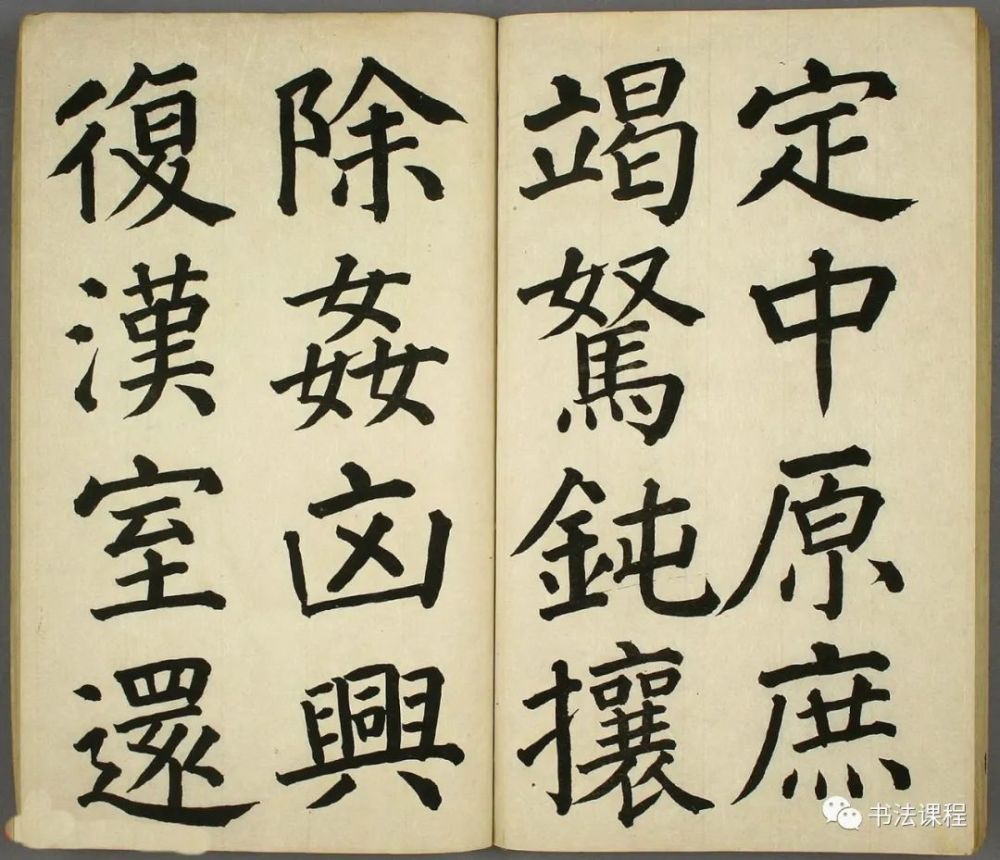 定中原庶
竭駑鈍攘
除姦凶興
復漢室還
书法课程